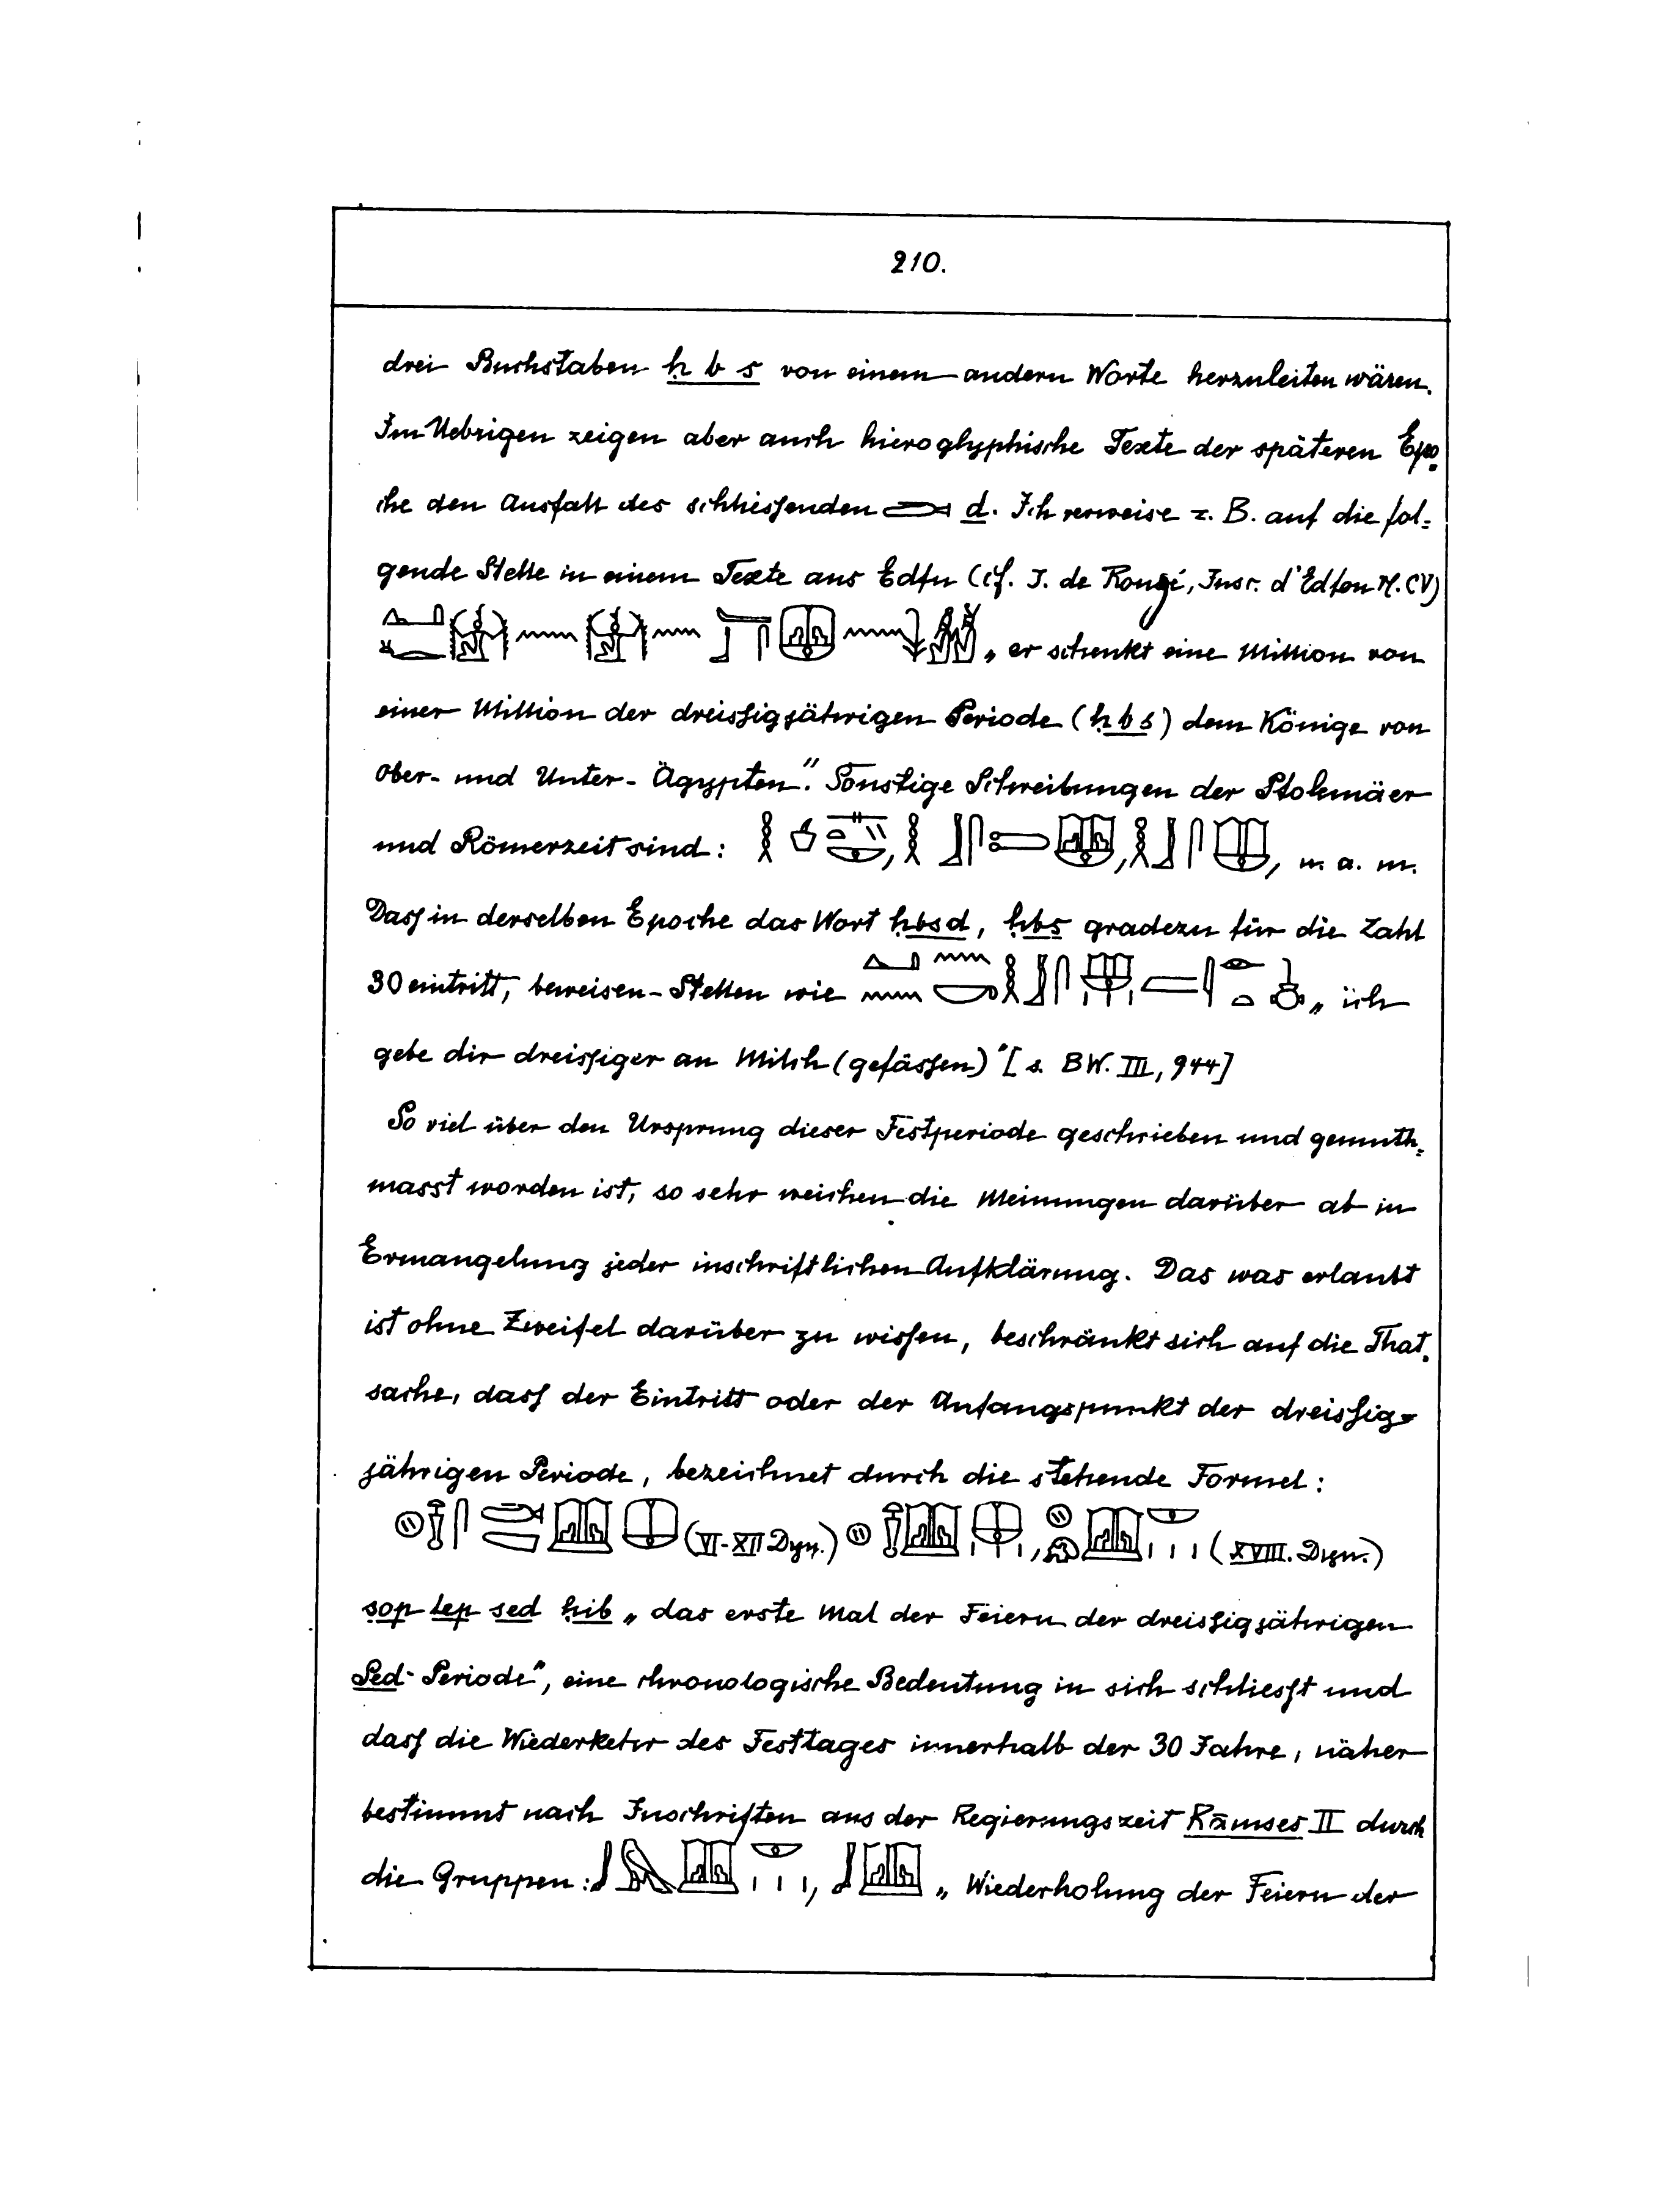 210.
drei Buchstaben ḥ b s von einem andern Worte herzuleiten wären.
Im Uebrigen zeigen aber auch hieroglyphische Texte der späteren Epo-
che den Ausfall des schliessenden d. Ich verweise z. B. auf die fol=
gende Stelle in einem Texte aus Edfu (cf. J. de Rougé, Inscr. d'Edfou Pl. CV)
„er schenkt eine Million von
einer Million der dreissigjährigen Periode (ḥbs) dem Könige von
Ober- und Unter-Ägypten." Sonstige Schreibungen der Ptolemäer
und Römerzeit sind: , , , u. a. m.
Dass in derselben Epoche das Wort ḥbsd, ḥbs gradezu für die Zahl
30 eintritt, beweisen Stellen wie „ich
gebe dir dreissiger an Milch (gefässen)" [s. BW. III, 944]
So viel über den Ursprung dieser Festperiode geschrieben und gemuth=
masst worden ist, so sehr weichen die Meinungen darüber ab in
Ermangelung jeder inschriftlichen Aufklärung. Das was erlaubt
ist ohne Zweifel darüber zu wissen, beschränkt sich auf die That-
sache, dass der Eintritt oder der Anfangspunkt der dreissig=
jährigen Periode, bezeichnet durch die stehende Formel:
(VI-XII Dyn.) , (XVIII. Dyn.)
sop tep sed ḥib „das erste Mal der Feiern der dreissigjährigen
Sed-Periode", eine chronologische Bedeutung in sich schliesst und
dass die Wiederkehr des Festtages innerhalb der 30 Jahre, näher
bestimmt nach Inschriften aus der Regierungszeit Rāmses II durch
die Gruppen: , „Wiederholung der Feiern der